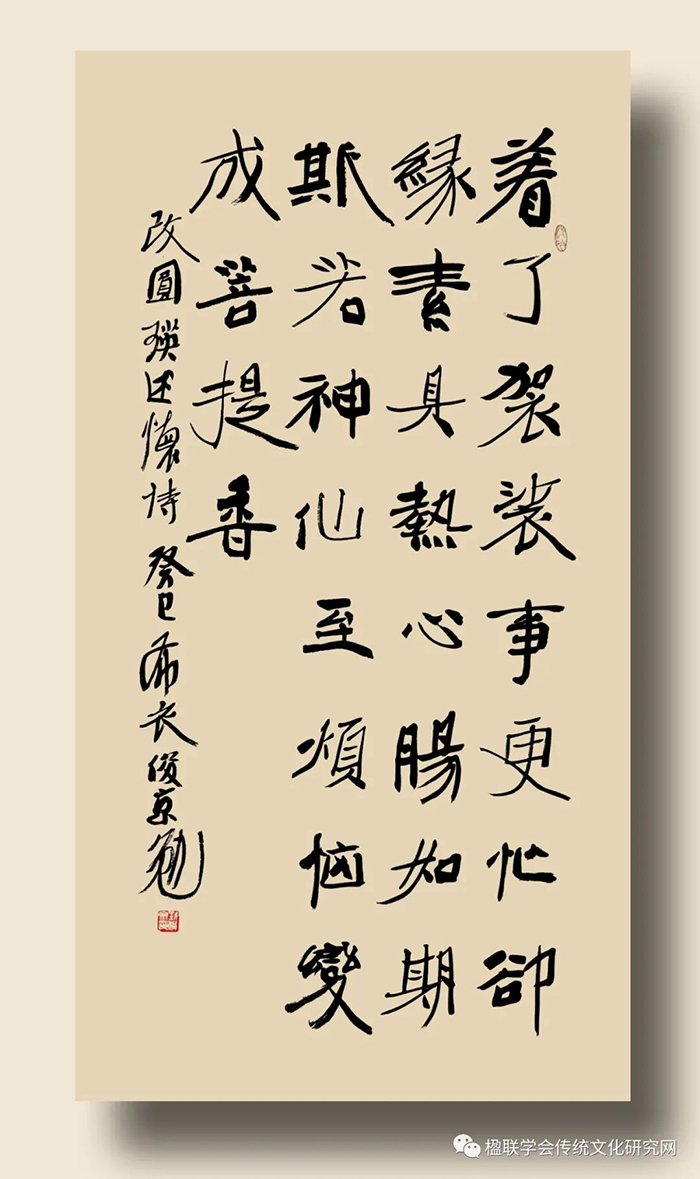 着了袈裟事更忙卻
緣素具熱心腸如期
斯若神仙至煩恼變
成菩提香
改圓瑛述懷诗 癸巳 布衣俊京勉
楹联学会传统文化研究网